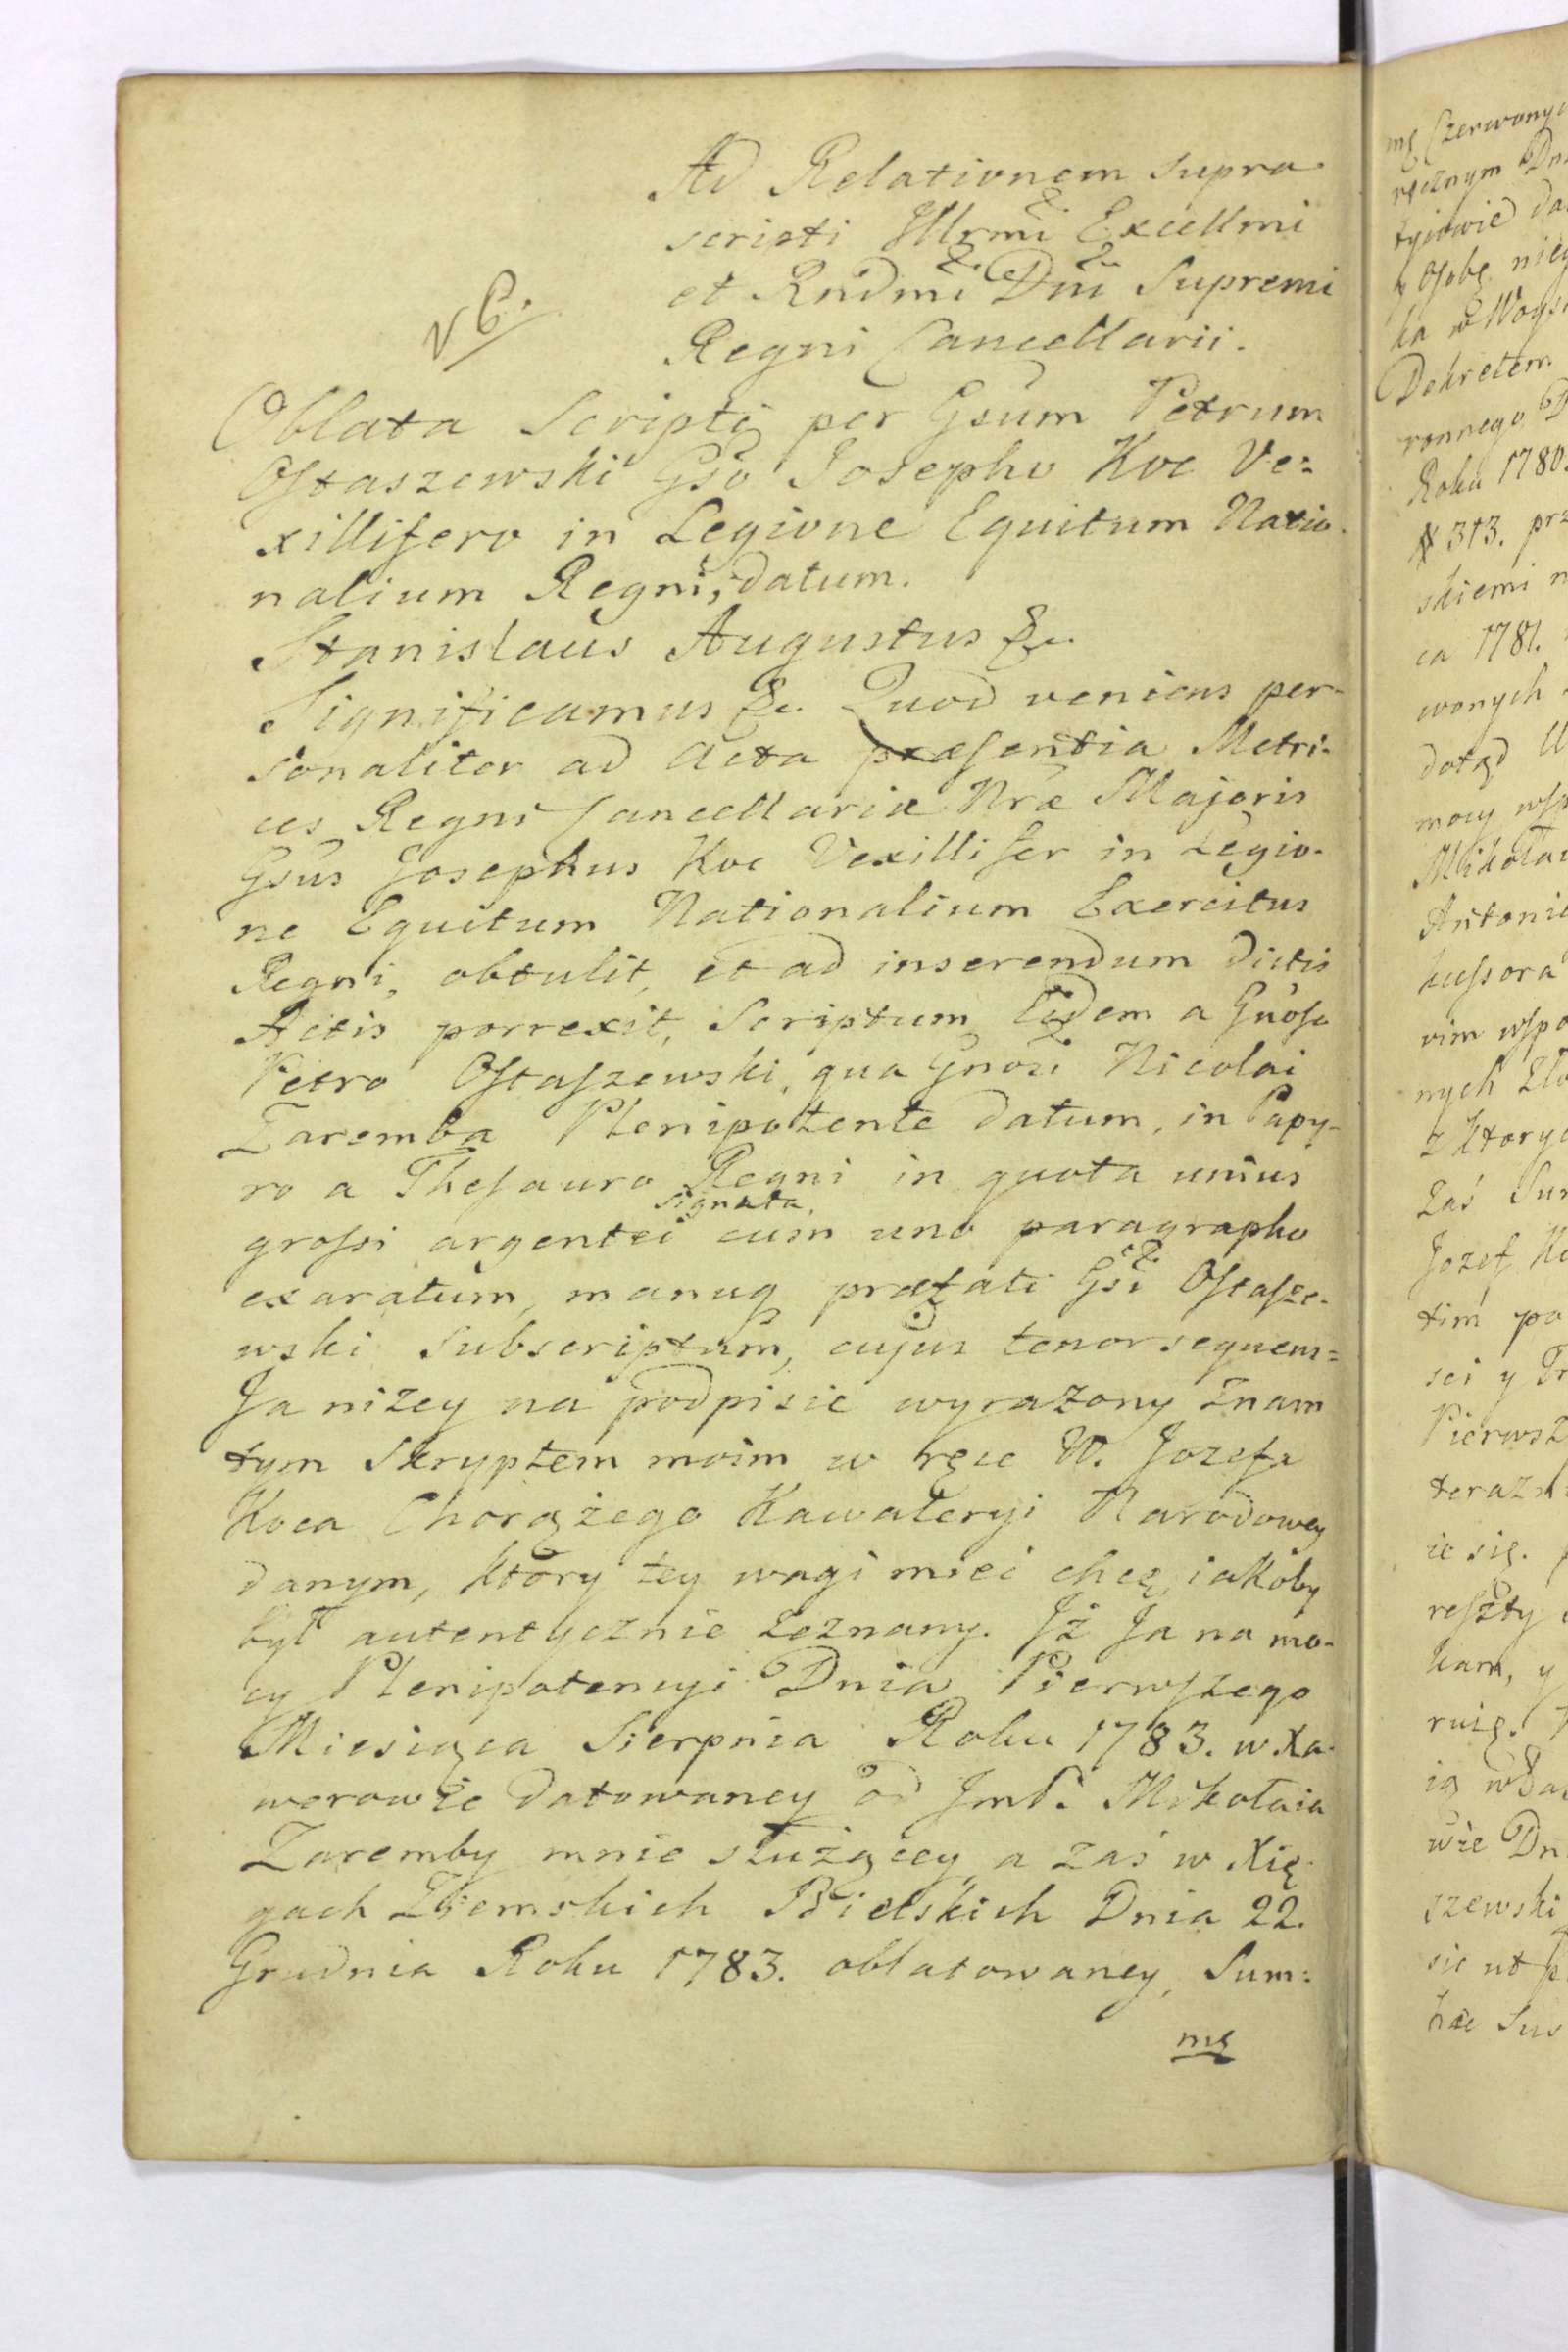 Ad Relationem supra
scripti Illrmi Excellmi
et Rndmi Dni Supremi
Regni Cancellarii.
Oblata Scripti per Gsum Petrum
Ostaszewski Gso Josepho Koc Ve=
xillifero in Legione Equitum Natio-
nalium Regni, datum.
Stanislaus Augustus &c.
Significamus &c. Quod veniens per-
sonaliter ad Acta præsentia Metri-
ces Regni Cancellariæ Nræ Majoris
Gsus Josephus Koc Vexillifer in Legio-
ne Equitum Nationalium Exercitus
Regni, obtulit, et ad inserendum dictis
Actis porrexit, Scriptum Eidem a Gnoso
Petro Ostaszewski, qua Gnosi Nicolai
Zaremba Plenipotente datum, in Papy-
ro a Thesauro Regni in quota unius
signata
grossi argentei cum uno paragrapho
exaratum, manuq præfati Gsi Ostasze-
wski Subscriptum, cujus tenor sequens=
Ja niżey na podpisie wyrażony znam
tym Skryptem moim w ręce W. Jozefa
Koca Chorążego Kawaleryi Narodowey
danym, który tey wagi mieć chcę, iakoby
był autentycznie zeznany. Iż Ja na mo-
cy Plenipotencyi Dnia Pierwszego
Miesiąca Sierpnia Roku 1783. w Xa-
werowie datowaney od Jmć. Mikołaia
Zaremby mnie służącey a zaś w Xię-
gach Ziemskich Bielskich Dnia 22.
Grudnia Roku 1783. oblatowaney, Sum=
mę
mę Czerwonych
ręcznym
Osobę
Dekretem
ronnego
Roku 1780.
N 313.
skiemi
ca 1781.
wonych
dotąd
mocy
Mikołai
Antonie
nych
z ktory
zaś
Jozef
tim
sci y
Pierwsz
teraz
ie się.
reszty
kam, y
ruię.
wie Dn
szewski
sic ut